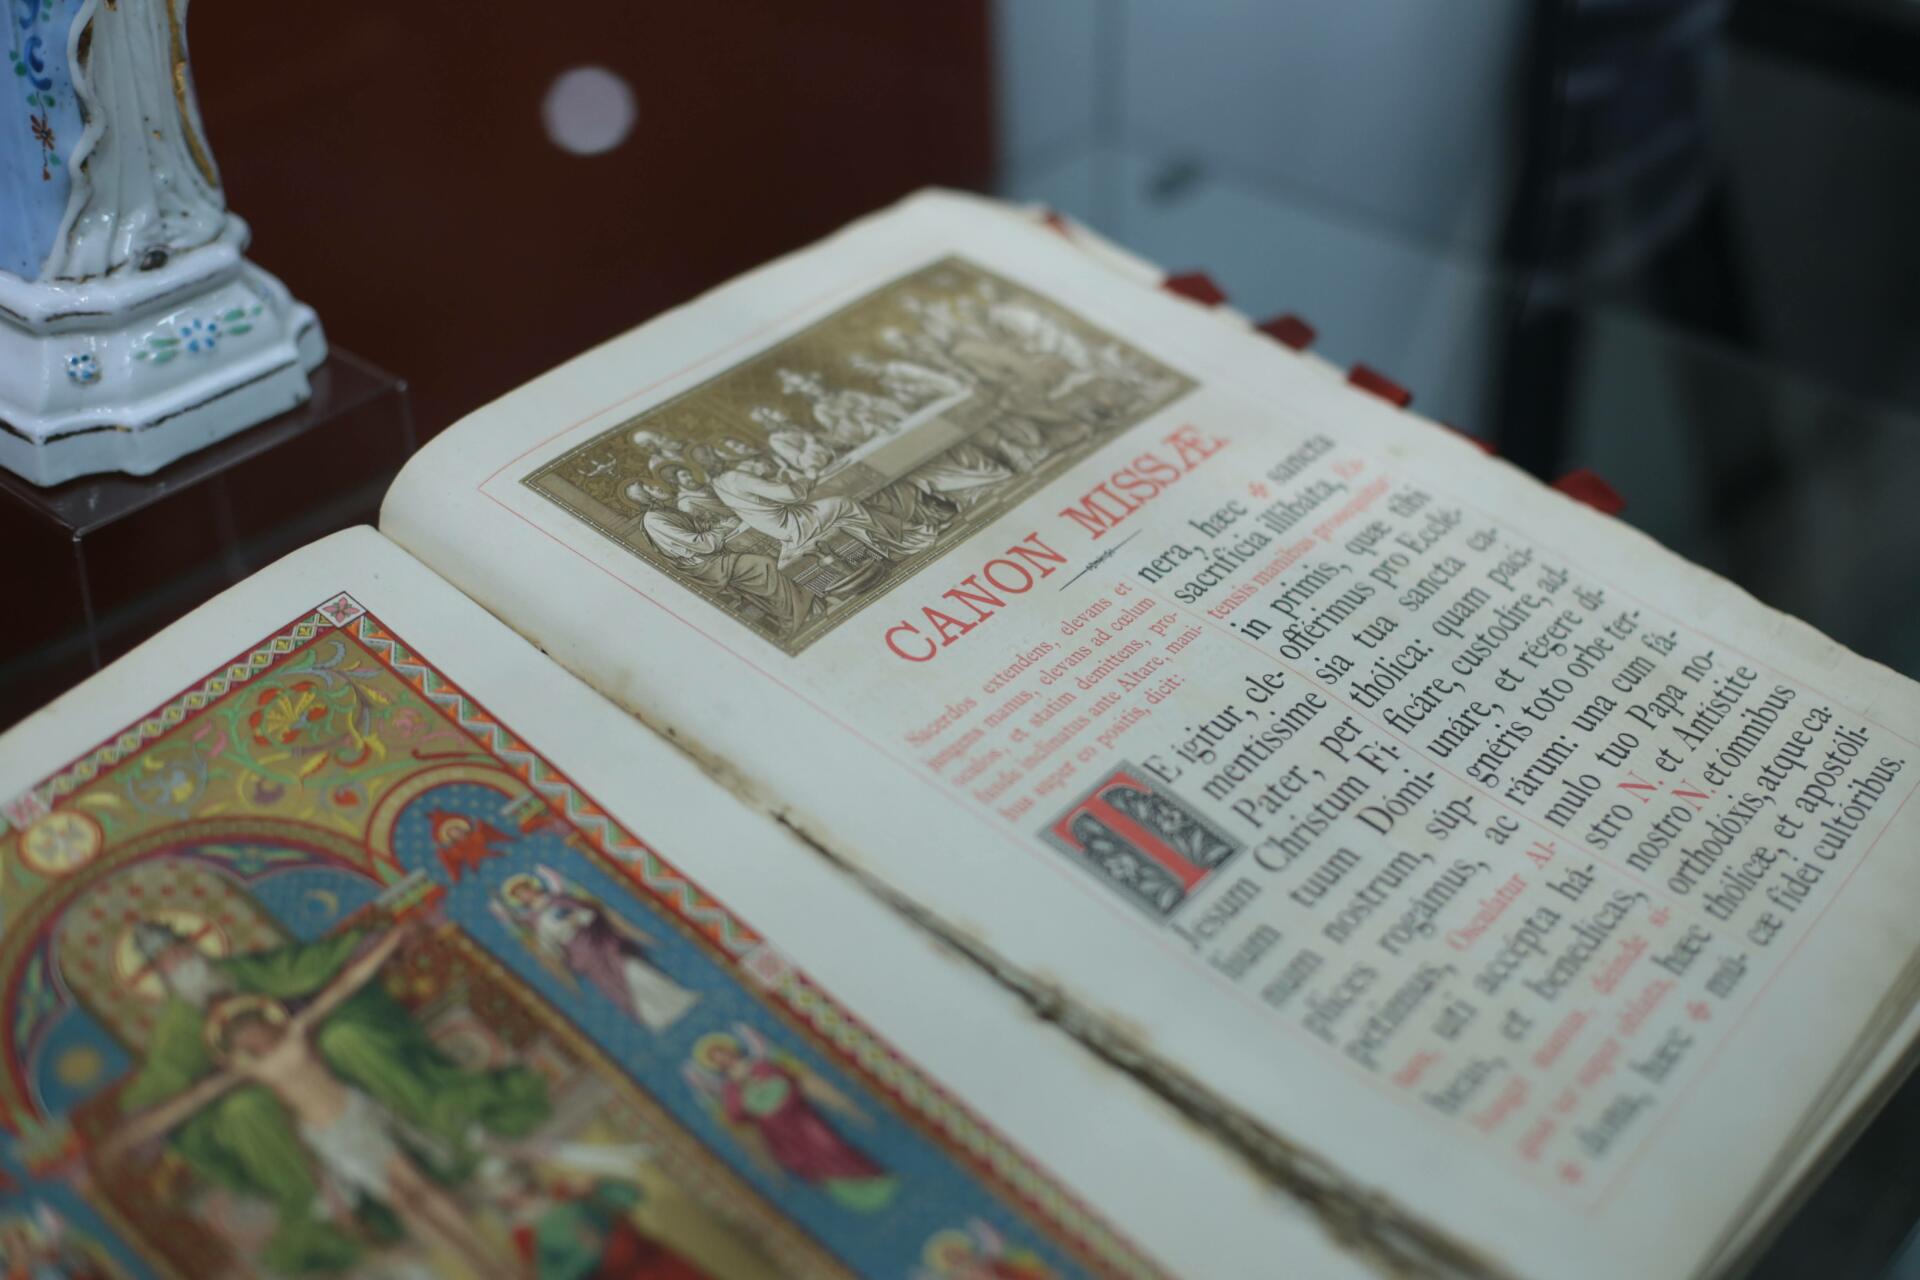 CANON MISSÆ
Sacerdos extendens, elevans et
jungens manus, elevans ad cœlum
oculos, et statim demittens, pro-
funde inclinatus ante Altare, mani-
bus super eo positis, dicit:
TE igitur, cle-
mentissime
Pater, per
Jesum Christum Fí-
lium tuum Dómi-
num nostrum, súp-
plices rogámus, ac
petimus, Osculatur Al-
tare, uti accépta há-
beas, et benedícas,
jungit manus, deinde si-
gnat ter super oblata, hæc
✠ dona, hæc ✠ mú-
nera, hæc ✠ sancta
sacrifícia illibáta, Ex-
tensis manibus prosequitur:
in primis, quæ tibi
offérimus pro Ecclé-
sia tua sancta ca-
thólica: quam paci-
ficáre, custodíre, ad-
unáre, et régere di-
gnéris toto orbe ter-
rárum: una cum fá-
mulo tuo Papa no-
stro N. et Antístite
nostro N. et ómnibus
orthodóxis, atque ca-
thólicæ, et apostóli-
cæ fídei cultóribus.